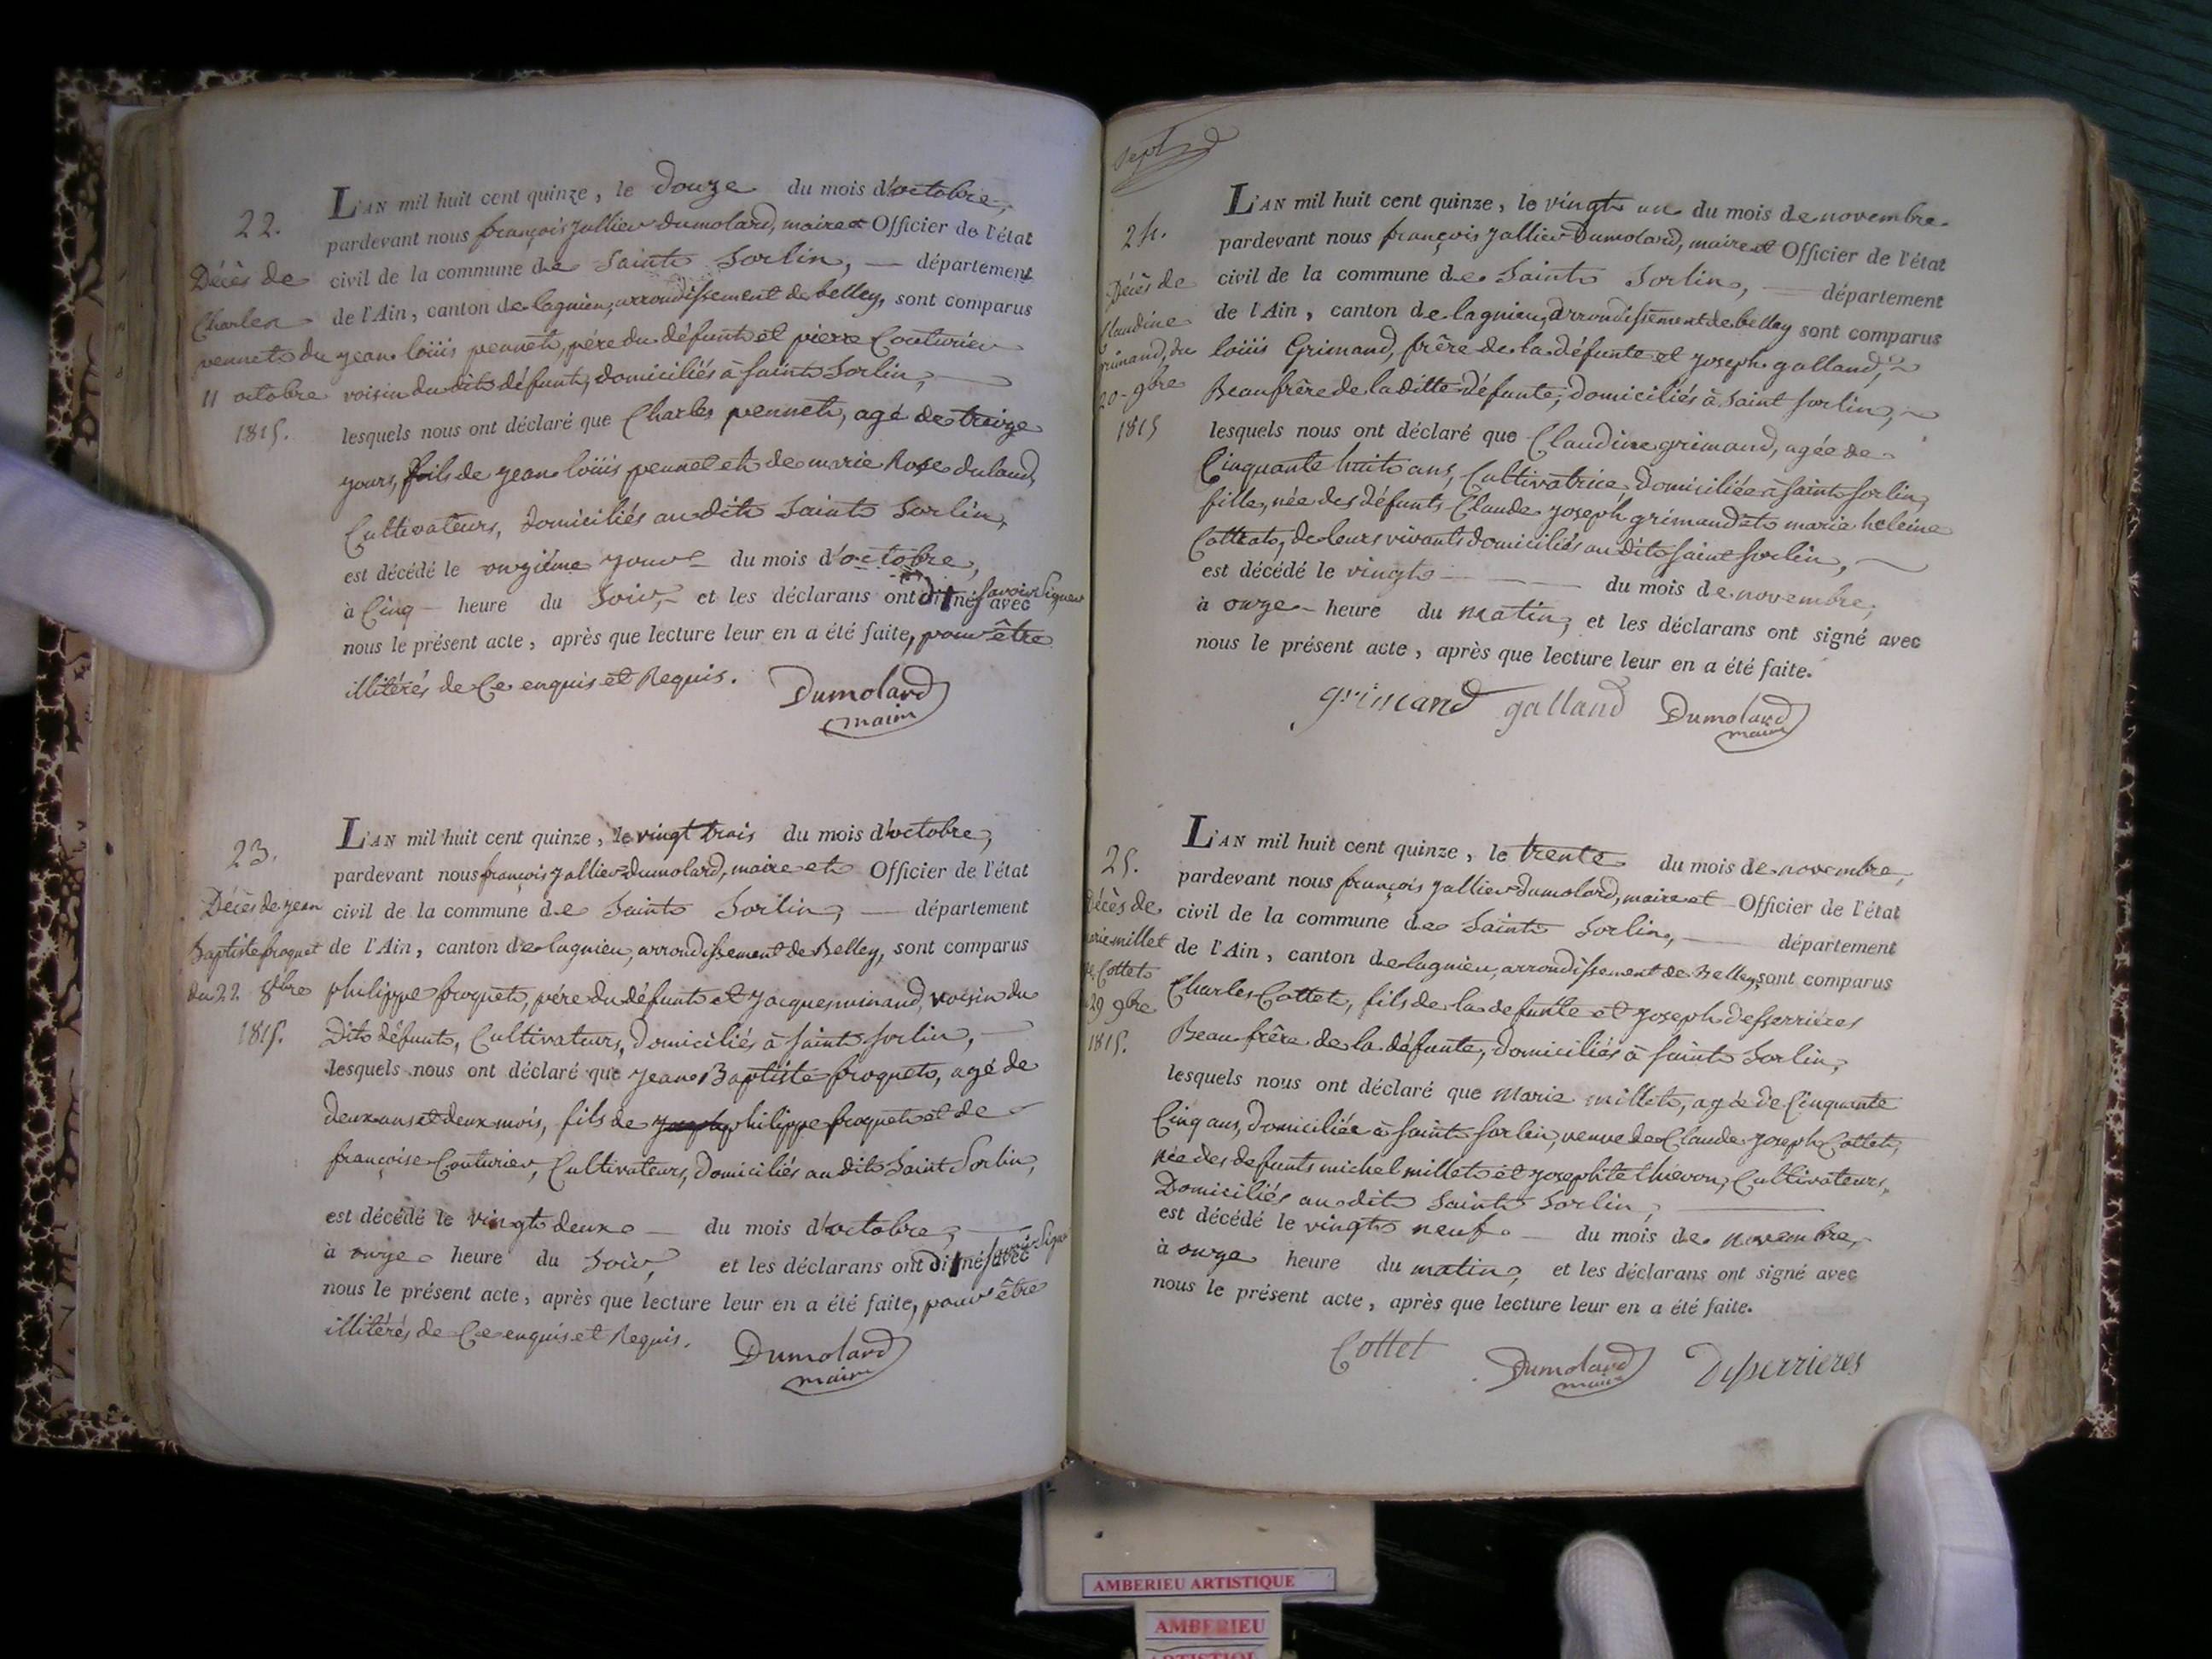 22.
Décès de
Charles
pennet du
11 octobre
1815.
L'AN mil huit cent quinze, le douze du mois d'octobre,
pardevant nous françois Jullien dumolard, maire et Officier de l'état
civil de la commune de Saint Sorlin, — département
de l'Ain, canton de lagnieu, arrondissement de belley, sont comparus
jean loüis pennet, pére du défunt et pierre Couturier
voisin du dit défunt, domiciliés à saint Sorlin,
lesquels nous ont déclaré que Charles pennet, agé de treize
jours, fils de jean loüis pennet et de marie Rose duland,
Cultivateurs, domiciliés au dit Saint Sorlin,
est décédé le onziéme jour du mois d'octobre,
à Cinq heure du Soir, et les déclarans ont dit né savoir Signer avec
nous le présent acte, après que lecture leur en a été faite, pour être
illitérés de Ce enquis et Requis.
Dumolard
maire
23.
Décès de jean
Baptiste froquet
du 22 8bre
1815.
L'AN mil huit cent quinze, le vingt trois du mois d'octobre,
pardevant nous françois Jullien dumolard, maire et Officier de l'état
civil de la commune de Saint Sorlin, — département
de l'Ain, canton de lagnieu, arrondissement de Belley, sont comparus
philippe froquet, pére du défunt et jacques minand, voisin du
Dit défunt, Cultivateurs, domiciliés à saint sorlin,
lesquels nous ont déclaré que jean Baptiste froquet, agé de
deux ans et deux mois, fils de philippe froquet et de
françoise Couturier, Cultivateurs, domiciliés au dit Saint Sorlin,
est décédé le vingt deux — du mois d'octobre,
à onze heure du Soir, et les déclarans ont dit né savoir Signer avec
nous le présent acte, après que lecture leur en a été faite, pour être
illitérés de Ce enquis et Requis.
Dumolard
maire
sept
24.
Décès de
Claudine
grimand, du
20 9bre
1815
L'AN mil huit cent quinze, le vingt un du mois de novembre
pardevant nous françois Jullien Dumolard, maire et Officier de l'état
civil de la commune de Saint Sorlin, — département
de l'Ain, canton de lagnieu, arrondissement de belley sont comparus
loüis Grimand, frère de la défunte et joseph galland,
Beaufrère de la ditte défunte, domiciliés à Saint sorlin,
lesquels nous ont déclaré que Claudine grimand, agée de
Cinquante huit ans, Cultivatrice, Domiciliée à saint sorlin,
fille, née des défunts Claude joseph grimand et marie heleine
Cottat, de leurs vivants domiciliés au dit saint sorlin,
est décédé le vingt — du mois de novembre,
à onze heure du matin, et les déclarans ont signé avec
nous le présent acte, après que lecture leur en a été faite.
grimand galland Dumolard
maire
25.
Décès de
marie millet
Ve Cottet
29 9bre
1815.
L'AN mil huit cent quinze, le trente du mois de novembre,
pardevant nous françois Jullien dumolard, maire et Officier de l'état
civil de la commune de Saint Sorlin, — département
de l'Ain, canton de lagnieu, arrondissement de Belley, sont comparus
Charles Cottet, fils de la defunte et joseph desserriéres
Beaufrère de la défunte, domiciliés à saint Sorlin,
lesquels nous ont déclaré que Marie millet, agée de Cinquante
Cinq ans, domiciliée à saint sorlin, veuve de Claude joseph Cottet,
née des defunts michel millet et josephte thievon, Cultivateurs,
Domiciliés au dit Saint Sorlin,
est décédé le vingt neuf — du mois de novembre,
à onze heure du matin, et les déclarans ont signé avec
nous le présent acte, après que lecture leur en a été faite.
Cottet Dumolard Desserrieres
maire
AMBERIEU ARTISTIQUE
AMBERIEU
ARTISTIQUE